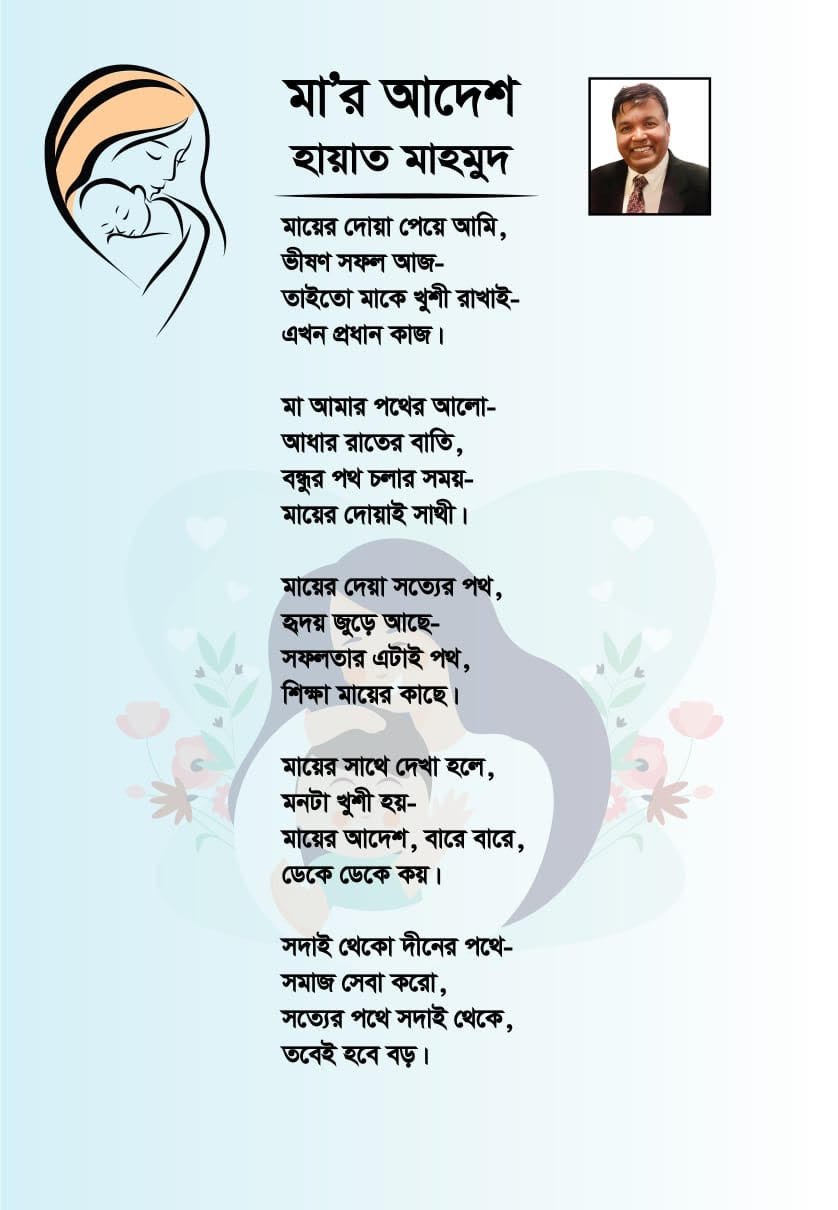 মা'র আদেশ
হায়াত মাহমুদ
মায়ের দোয়া পেয়ে আমি,
ভীষণ সফল আজ-
তাইতো মাকে খুশী রাখাই-
এখন প্রধান কাজ।
মা আমার পথের আলো-
আধার রাতের বাতি,
বন্ধুর পথ চলার সময়-
মায়ের দোয়াই সাথী।
মায়ের দেয়া সত্যের পথ,
হৃদয় জুড়ে আছে-
সফলতার এটাই পথ,
শিক্ষা মায়ের কাছে।
মায়ের সাথে দেখা হলে,
মনটা খুশী হয়-
মায়ের আদেশ, বারে বারে,
ডেকে ডেকে কয়।
সদাই থেকো দীনের পথে-
সমাজ সেবা করো,
সত্যের পথে সদাই থেকে,
তবেই হবে বড়।